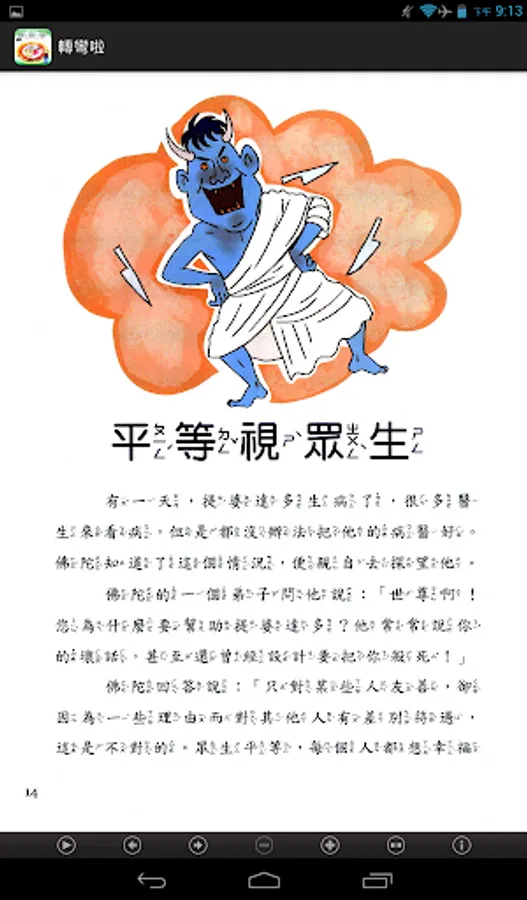 下午 9:13
轉彎啦
平等視眾生
有一天，提婆達多生病了，很多醫
生來看病，但是都沒辦法把他的病醫好。
佛陀知道了這個情況，便親自去探望他。
佛陀的一個弟子問他說：「世尊啊！
您為什麼要幫助提婆達多？他常常說你
的壞話，甚至還曾經設計要把你殺死！」
佛陀回答說：「只對某些人友善，卻
因為一些理由而對其他人有差別待遇，
這是不對的。眾生平等，每個人都想幸福
14